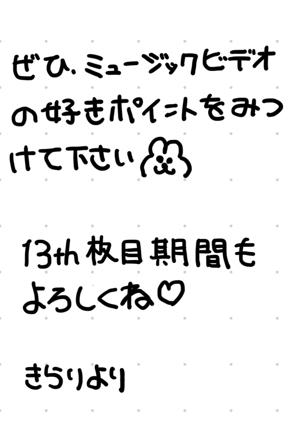 ぜひ、ミュージックビデオ
の好きポイントをみつ
けて下さい
13th枚目期間も
よろしくね♡
きらりより